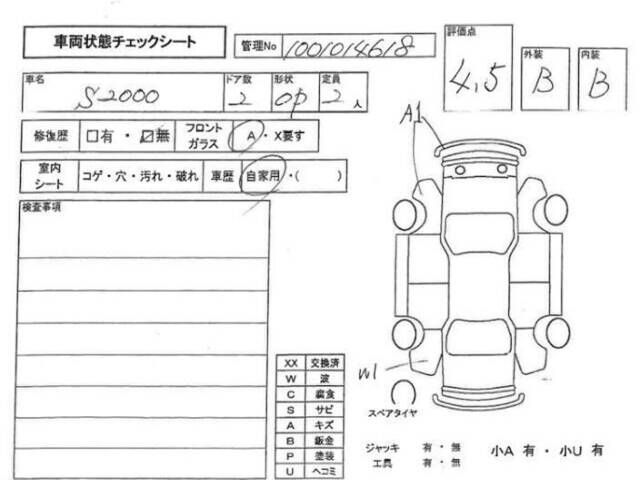 車両状態チェックシート
管理No 1001014618
評価点 4.5
外装 B
内装 B
車名 S2000
ドア数 2
形状 OP
定員 2人
修復歴 □有・☑無
フロントガラス A・X要す
室内シート コゲ・穴・汚れ・破れ
車歴 自家用・( )
検査事項
A1
W1
XX 交換済
W 波
C 腐食
S サビ
A キズ
B 鈑金
P 塗装
U ヘコミ
スペアタイヤ
ジャッキ 有・無
工具 有・無
小A 有・小U 有